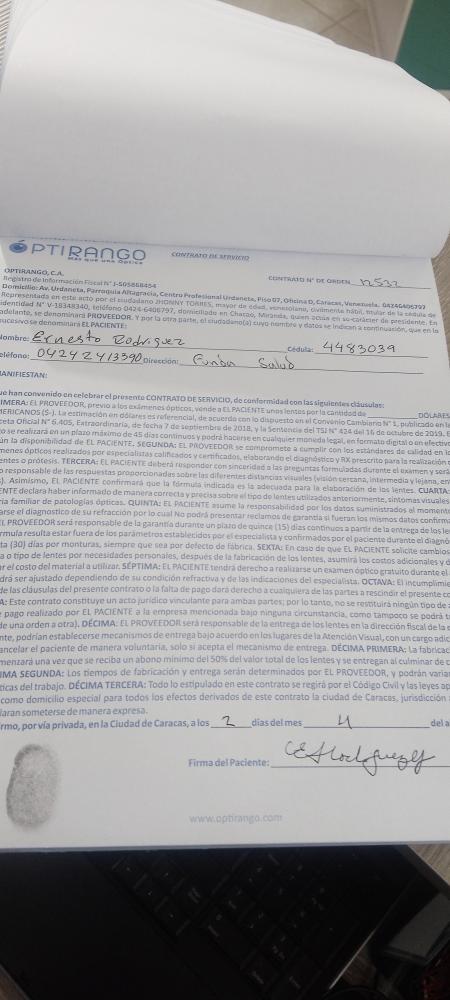 OPTIRANGO
MÁS QUE UNA ÓPTICA
CONTRATO DE SERVICIO
OPTIRANGO, C.A.
Registro de Información Fiscal N° J-505868454
CONTRATO N° DE ORDEN 12532
Domicilio: Av. Urdaneta, Parroquia Altagracia, Centro Profesional Urdaneta, Piso 07, Oficina D, Caracas, Venezuela. 04246406797
Representada en este acto por el ciudadano JHONNY TORRES, mayor de edad, venezolano, civilmente hábil, titular de la cédula de
identidad N° V-18348340, teléfono 0424-6406797, domiciliado en Chacao, Miranda, quien actúa en su carácter de presidente. En
adelante, se denominará PROVEEDOR. Y por la otra parte, el ciudadano(a) cuyo nombre y datos se indican a continuación, que en lo
sucesivo se denominará EL PACIENTE:
Nombre: Ernesto Rodriguez Cédula: 4483039
eléfono: 04242413390 Dirección: Funda Salud
MANIFIESTAN:
ue han convenido en celebrar el presente CONTRATO DE SERVICIO, de conformidad con las siguientes cláusulas:
IMERA: EL PROVEEDOR, previo a los exámenes ópticos, vende a EL PACIENTE unos lentes por la cantidad de DÓLARES
MERICANOS ($-). La estimación en dólares es referencial, de acuerdo con lo dispuesto en el Convenio Cambiario N° 1, publicado en la
ceta Oficial N° 6.405, Extraordinaria, de fecha 7 de septiembre de 2018, y la Sentencia del TSJ N° 424 del 16 de octubre de 2019. E
o se realizará en un plazo máximo de 45 días continuos y podrá hacerse en cualquier moneda legal, en formato digital o en efectivo
ún la disponibilidad de EL PACIENTE. SEGUNDA: EL PROVEEDOR se compromete a cumplir con los estándares de calidad en lo
menes ópticos realizados por especialistas calificados y certificados, elaborando el diagnóstico y RX prescrito para la realización
entes o prótesis. TERCERA: EL PACIENTE deberá responder con sinceridad a las preguntas formuladas durante el examen y será
o responsable de las respuestas proporcionadas sobre las diferentes distancias visuales (visión cercana, intermedia y lejana, en
). Asimismo, EL PACIENTE confirmará que la fórmula indicada es la adecuada para la elaboración de los lentes. CUARTA:
ENTE declara haber informado de manera correcta y precisa sobre el tipo de lentes utilizados anteriormente, síntomas visuales
ria familiar de patologías ópticas. QUINTA: EL PACIENTE asume la responsabilidad por los datos suministrados al momento
arse el diagnostico de su refracción por lo cual No podrá presentar reclamos de garantía si fueran los mismos datos confirma
EL PROVEEDOR será responsable de la garantía durante un plazo de quince (15) días continuos a partir de la entrega de los le
rmula resulta estar fuera de los parámetros establecidos por el especialista y confirmados por el paciente durante el diagnó
ta (30) días por monturas, siempre que sea por defecto de fábrica. SEXTA: En caso de que EL PACIENTE solicite cambios
a o tipo de lentes por necesidades personales, después de la fabricación de los lentes, asumirá los costos adicionales y d
ar el costo del material a utilizar. SÉPTIMA: EL PACIENTE tendrá derecho a realizarse un examen óptico gratuito durante el
drá ser ajustado dependiendo de su condición refractiva y de las indicaciones del especialista. OCTAVA: El incumplimie
de las cláusulas del presente contrato o la falta de pago dará derecho a cualquiera de las partes a rescindir el presente co
A: Este contrato constituye un acto jurídico vinculante para ambas partes; por lo tanto, no se restituirá ningún tipo de
pago realizado por EL PACIENTE a la empresa mencionada bajo ninguna circunstancia, como tampoco se podrá t
de una orden a otra). DÉCIMA: EL PROVEEDOR será responsable de la entrega de los lentes en la dirección fiscal de la e
nte, podrían establecerse mecanismos de entrega bajo acuerdo en los lugares de la Atención Visual, con un cargo adic
ancelar el paciente de manera voluntaria, solo si acepta el mecanismo de entrega. DÉCIMA PRIMERA: La fabricac
menzará una vez que se reciba un abono mínimo del 50% del valor total de los lentes y se entregan al culminar de c
IMA SEGUNDA: Los tiempos de fabricación y entrega serán determinados por EL PROVEEDOR, y podrán varia
ticas del trabajo. DÉCIMA TERCERA: Todo lo estipulado en este contrato se regirá por el Código Civil y las leyes ap
como domicilio especial para todos los efectos derivados de este contrato la ciudad de Caracas, jurisdicción
laran someterse de manera expresa.
rmo, por vía privada, en la Ciudad de Caracas, a los 2 días del mes 4 del a
Firma del Paciente:
www.optirango.com